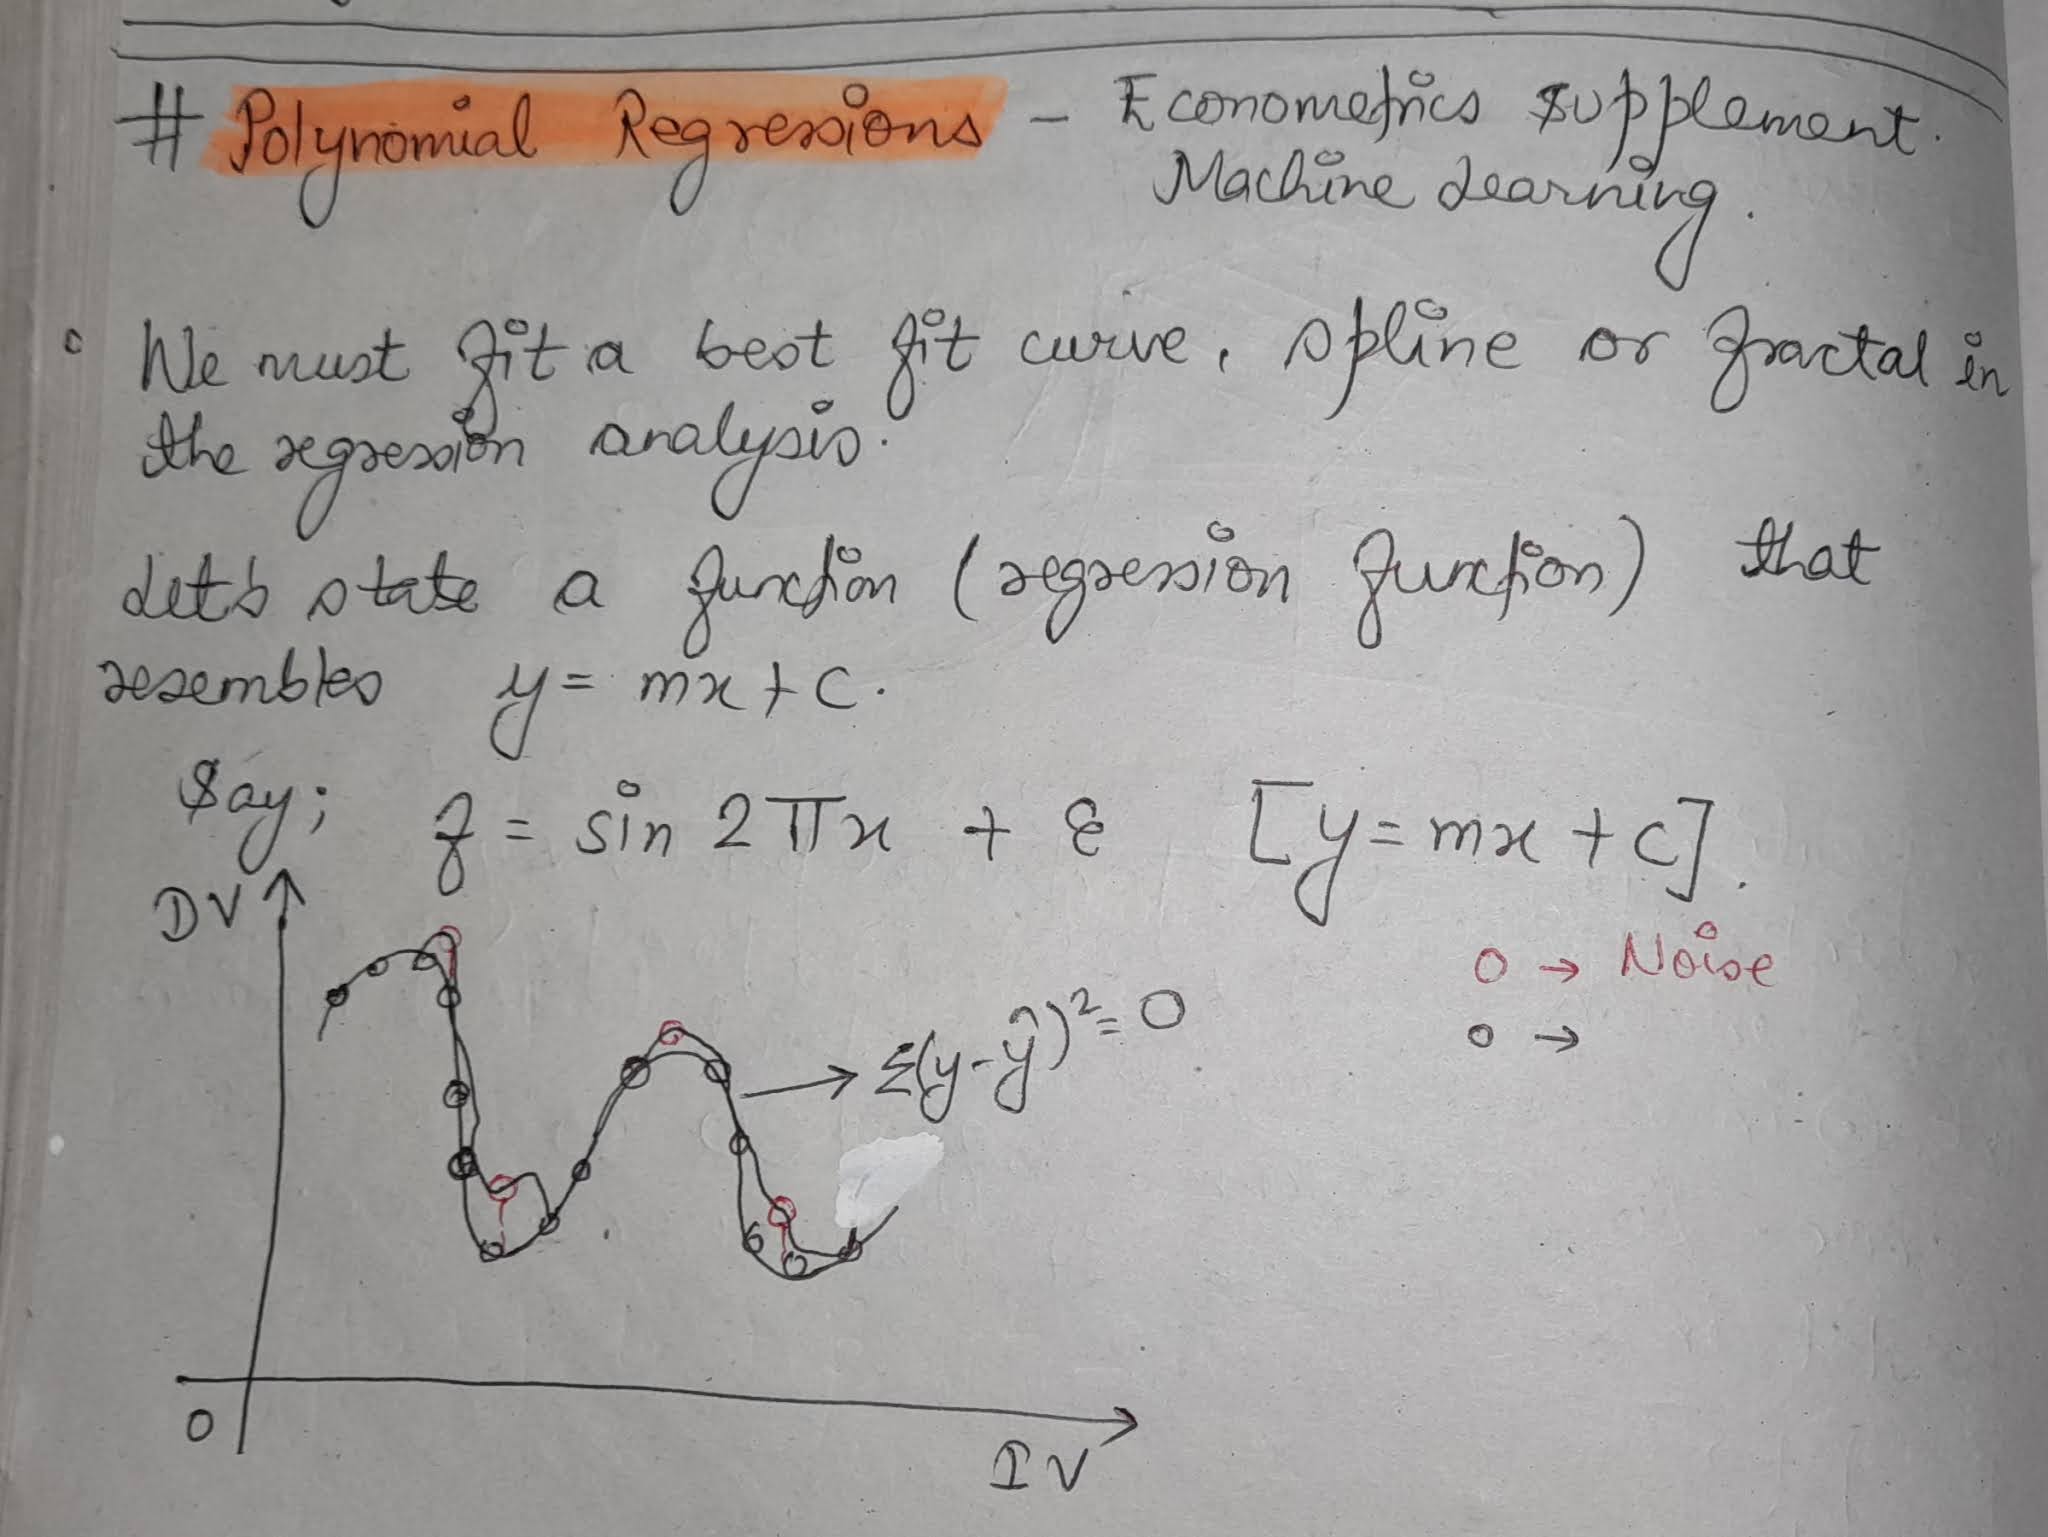 # Polynomial Regressions - Econometrics Supplement.
Machine Learning.
We must fit a best fit curve, spline or fractal in
the regression analysis.
Let's state a function (regression function) that
resembles y = mx + c.
Say; f = sin 2πx + ε [y = mx + c].
DV
O → Noise
Σ(y-ŷ)²= 0
o →
O
IV